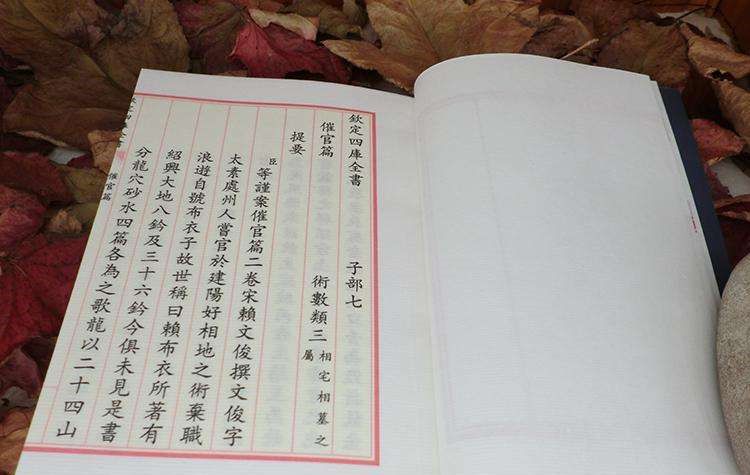 欽定四庫全書 子部七
催官篇 術數類三 相宅相墓之屬
提要
臣等謹案催官篇二卷宋賴文俊撰文俊字
太素處州人嘗官於建陽好相地之術棄職
浪遊自號布衣子故世稱曰賴布衣所著有
紹興大地八鈐及三十六鈐今俱未見是書
分龍穴砂水四篇各為之歌龍以二十四山
催官篇